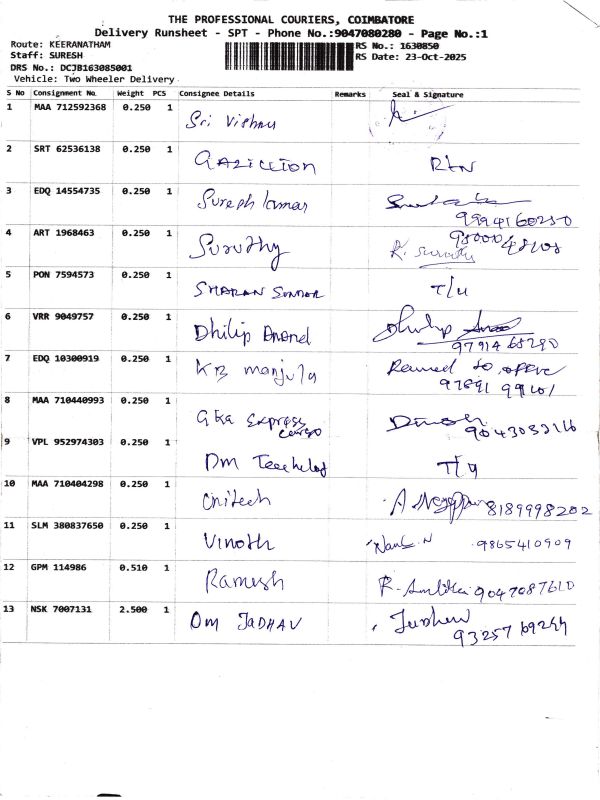 THE PROFESSIONAL COURIERS, COIMBATORE
Delivery Runsheet - SPT - Phone No.:9047080280 - Page No.:1
Route: KEERANATHAM
RS No.: 1630850
Staff: SURESH
RS Date: 23-Oct-2025
DRS No.: DCJB163085001
Vehicle: Two Wheeler Delivery
S No Consignment No. Weight PCS Consignee Details Remarks Seal & Signature
1 MAA 712592368 0.250 1 Sri Vishnu
2 SRT 62536138 0.250 1 RTN
3 EDQ 14554735 0.250 1 Suresh kumar
9994160250
4 ART 1968463 0.250 1 Suruthy
5 PON 7594573 0.250 1 SHARAN SUNDAR T/U
6 VRR 9049757 0.250 1 Dhilip Anand Dhilip
7 EDQ 10300919 0.250 1 KB manjula
8 MAA 710440993 0.250 1 Gka Express cargo
9 VPL 952974303 0.250 1 Dm T/U
10 MAA 710404298 0.250 1 8189998202
11 SLM 380837650 0.250 1 Vinoth 9865410909
12 GPM 114986 0.510 1 Ramesh 9047087610
13 NSK 7007131 2.500 1 OM JADHAV